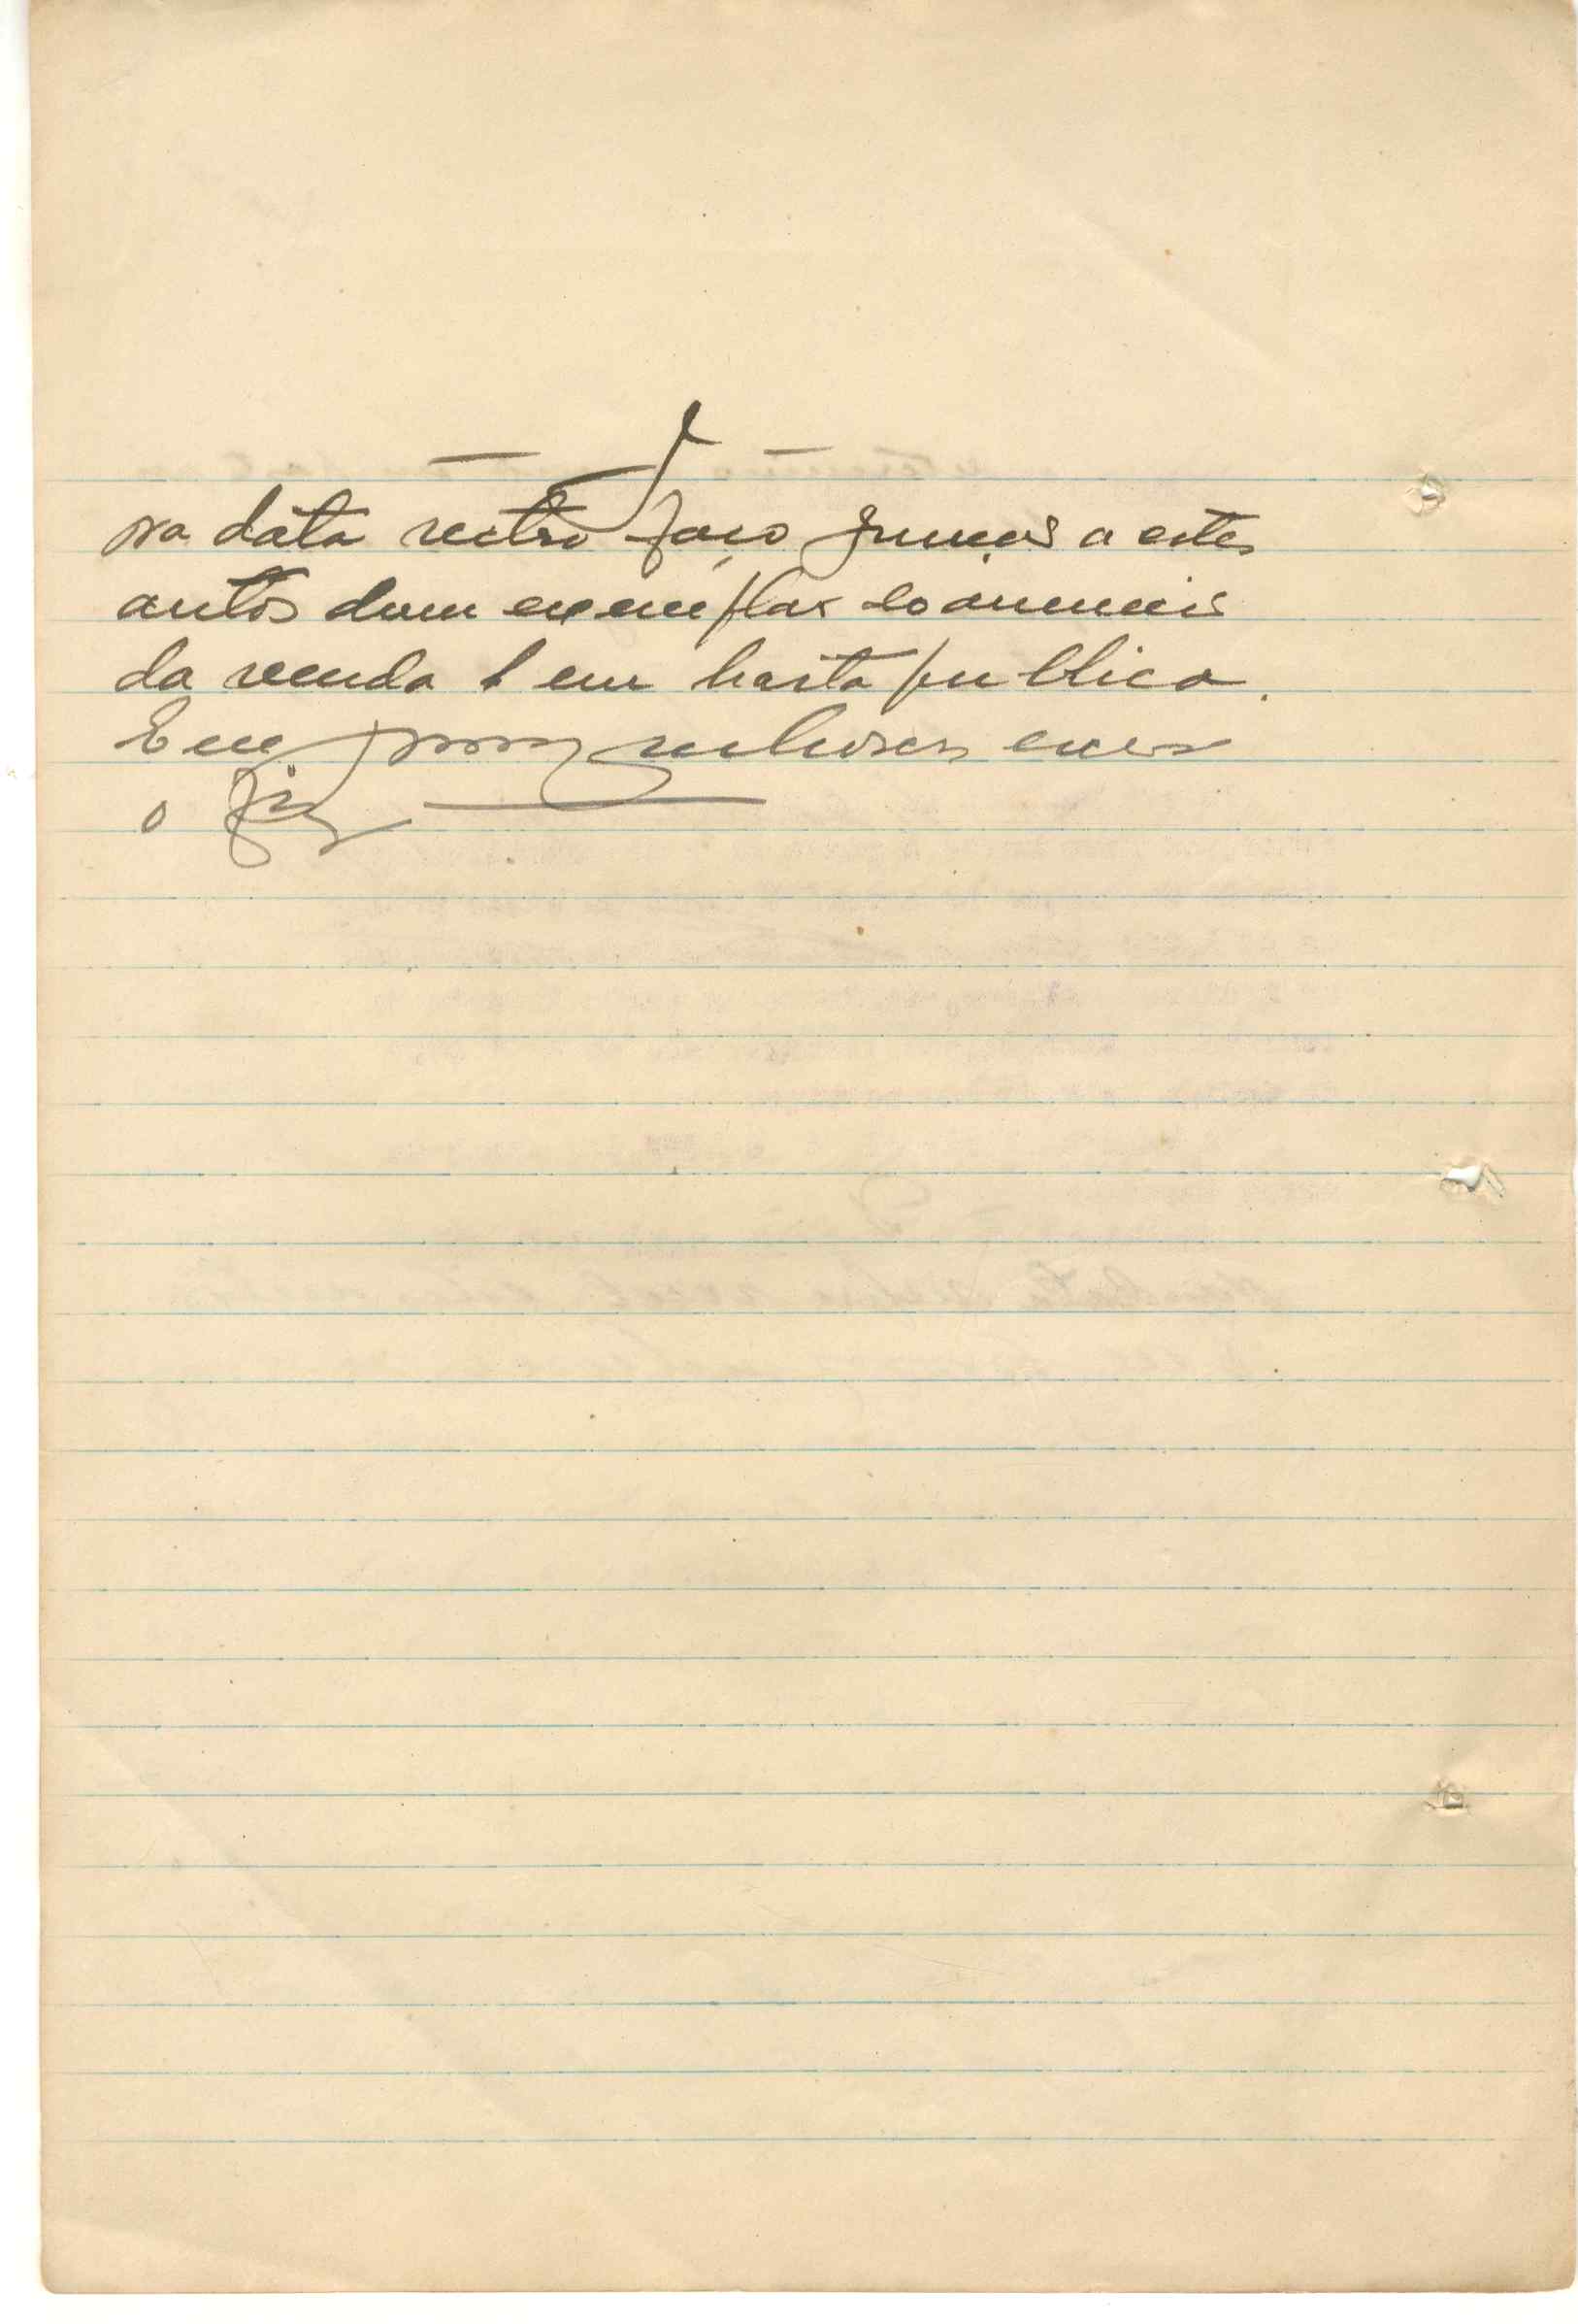 J
na data rectro faço junção a estes
autos dum exemplar do anuncio
da venda em hasta publica.
Eu
o fiz